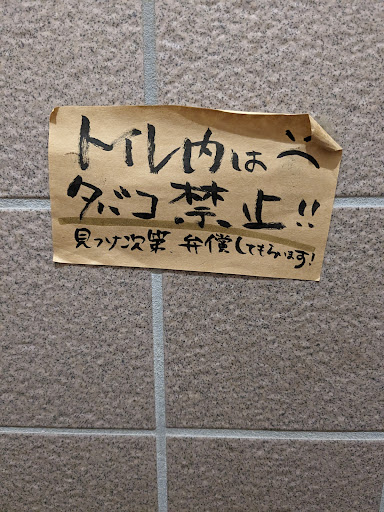 トイレ内は
タバコ禁止!!
見つけ次第 弁償してもらいます!